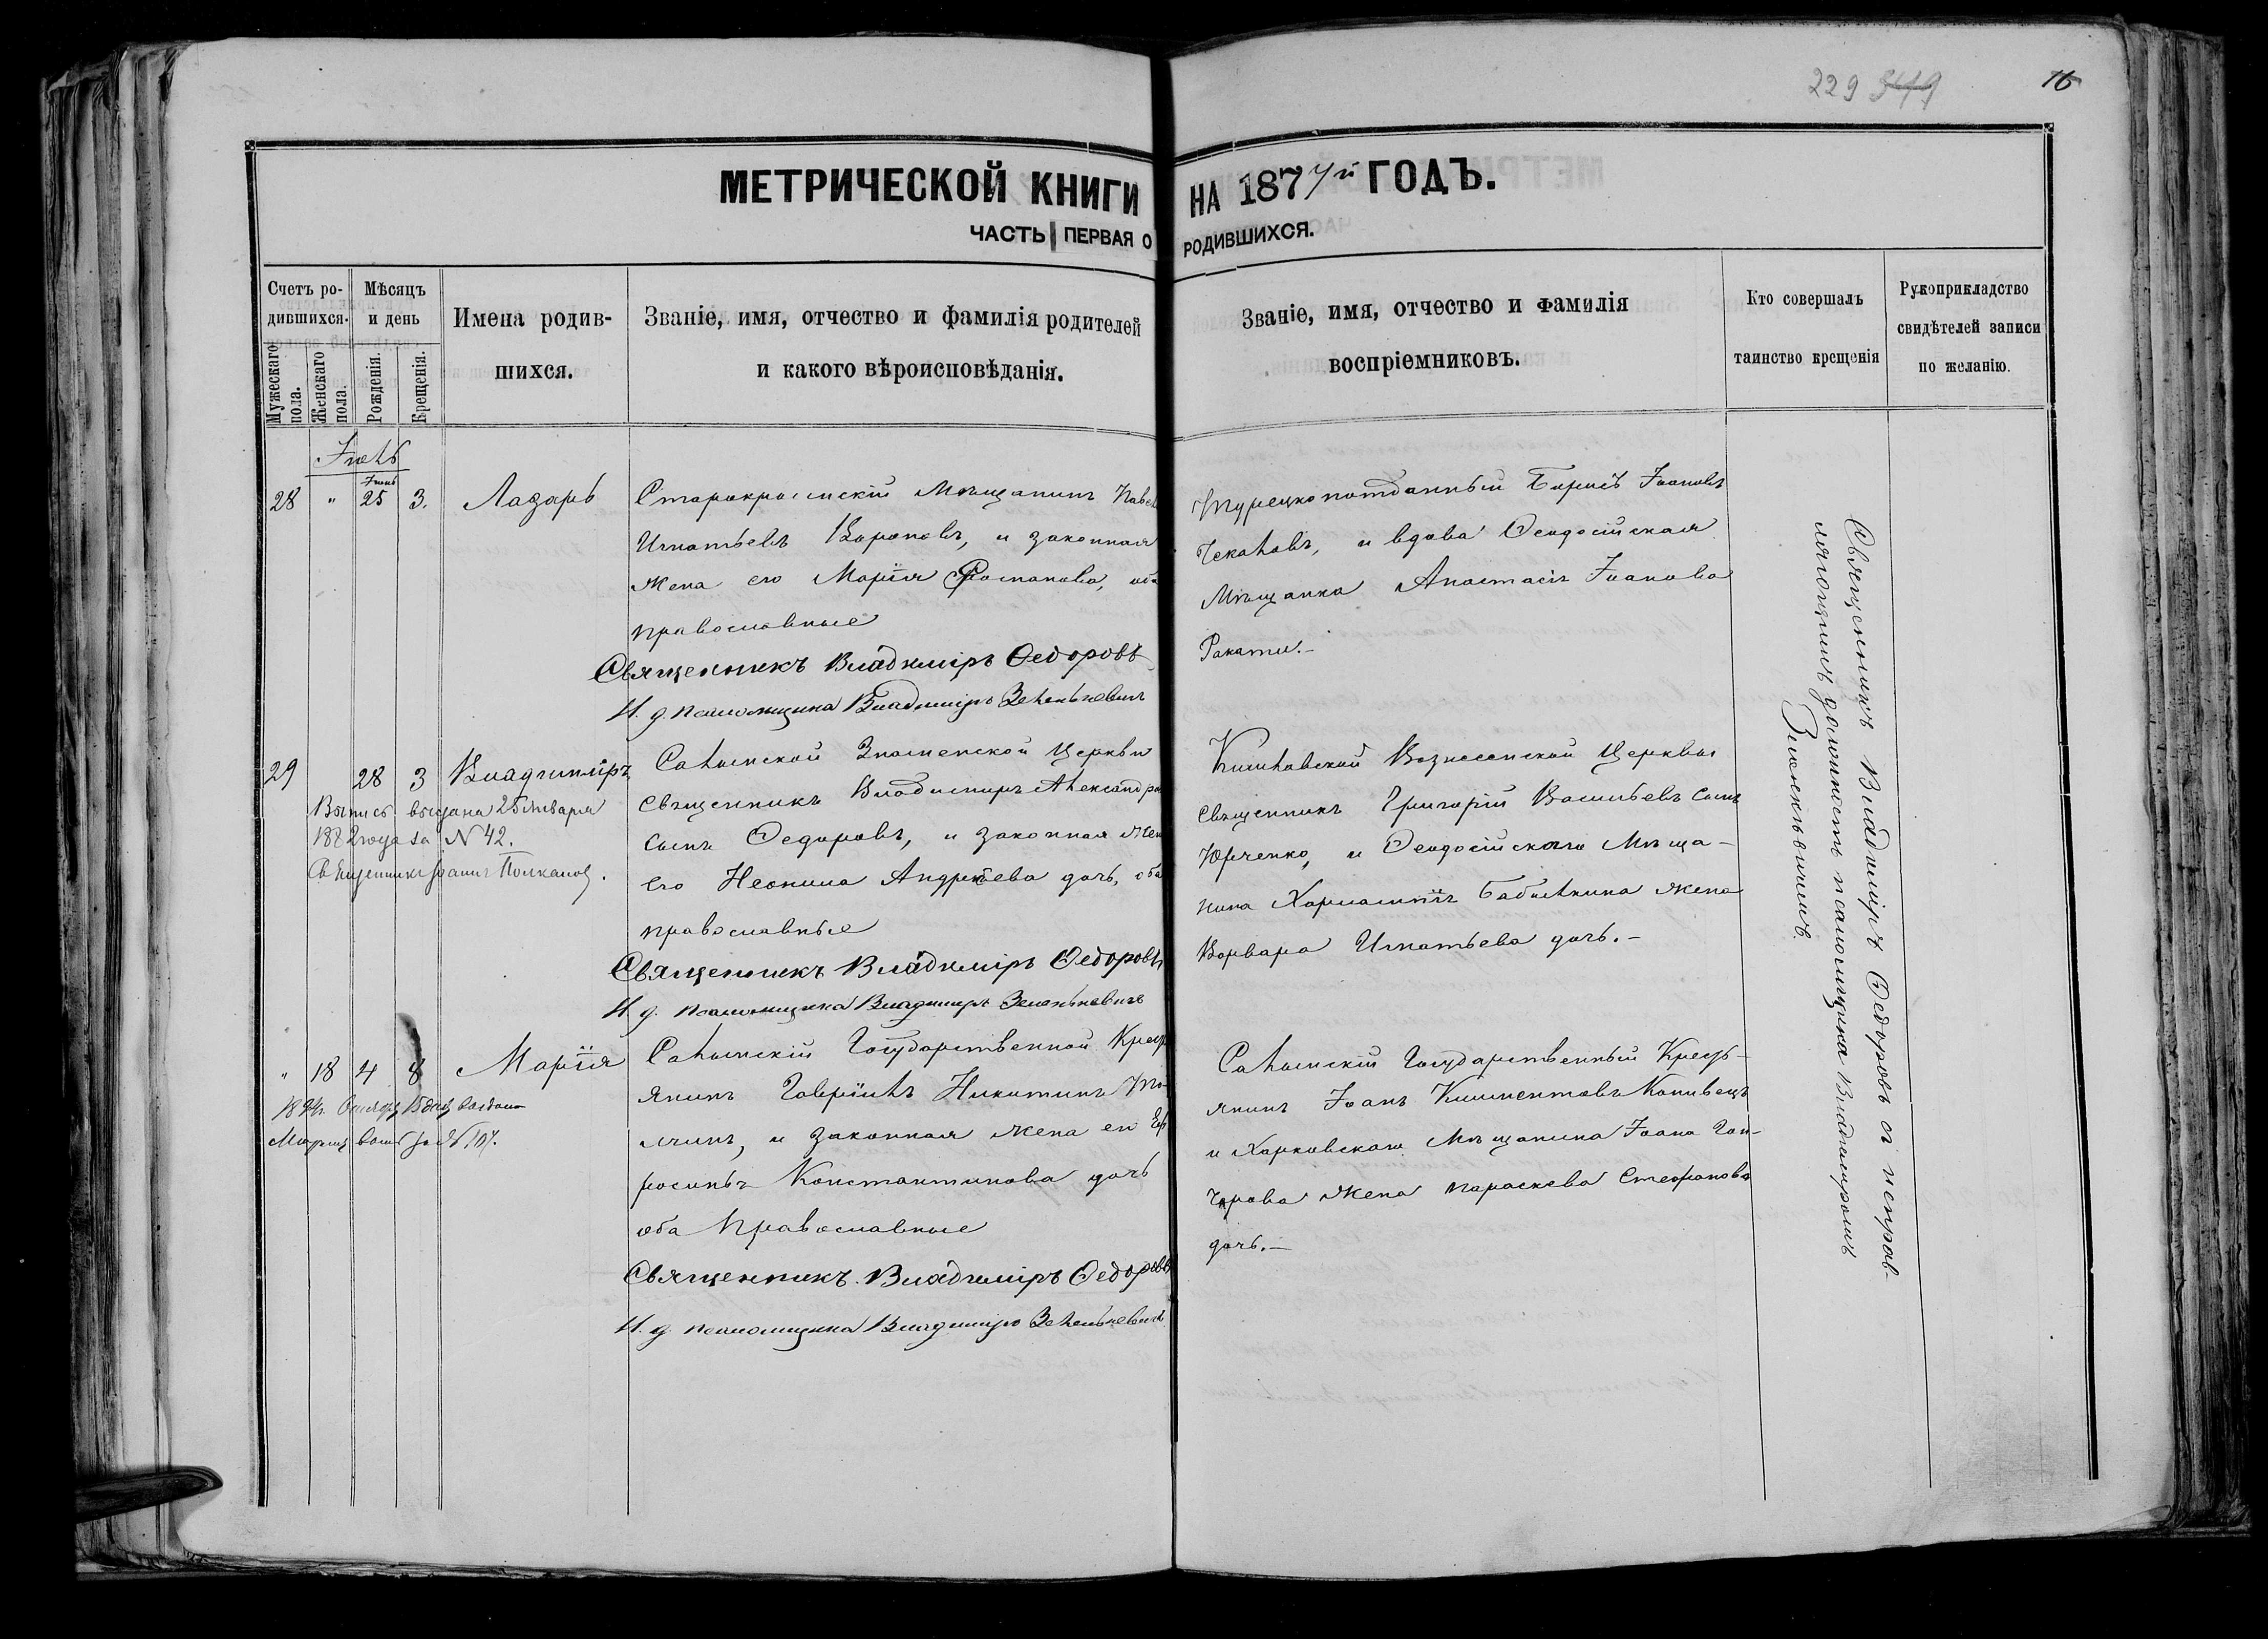 229 349 16
МЕТРИЧЕСКОЙ КНИГИ НА 1877й ГОДЪ.
ЧАСТЬ ПЕРВАЯ О РОДИВШИХСЯ.
Счетъ ро-
дившихся.
Мужескаго
пола.
Женскаго
пола.
Мѣсяцъ
и день
Рожденія.
Крещенія.
Имена родив-
шихся.
Званіе, имя, отчество и фамилія родителей
и какого вѣроисповѣданія.
Званіе, имя, отчество и фамилія
воспріемниковъ.
Кто совершалъ
таинство крещенія
Рукоприкладство
свидѣтелей записи
по желанію.
Іюль
Іюнь
28 " 25 3. Лазарь
Старокрымскій Мѣщанинъ Паве
Игнатьевъ Вороновъ, и законная
жена его Марія Романова, оба
православные
Священникъ Владиміръ Ѳедоровъ
И. д. псаломщика Владиміръ Зеленькевичъ
Турецкоподданный Борисъ Іоановъ
Чекаловъ, и вдова Ѳеодосійская
Мѣщанка Анастасія Іоанова
Ракати.-
29 28 3 Владиміръ
Выпись выдана 25 января
1882 года за N 42.
Священникъ Іоаннъ Полканов.
Салынской Знаменской Церкви
священникъ Владимиръ Александро
сынъ Ѳедоровъ, и законная жен
его Неонила Андреева дочь, оба
православные
Священникъ Владиміръ Ѳедоровъ
И д. псаломщика Владимиръ Зеленькевичъ
Вознесенской Церквы
священникъ Григорій Васильевъ сынъ
Юрченко, и Ѳеодосійскаго Мѣща-
нина Бабылкина жена
Варвара Игнатьева дочь.-
" 18 4 8 Марія
15 выдана
за № 107.
Салынскій Государственной Крест
янинъ Гавріилъ Никитинъ То-
, и законная жена его Еф
росинья Константинова дочь
оба Православные
Священникъ Владиміръ Ѳедоровъ
И. д. псаломщика Владимиръ Зеленькевичъ
Салынскій Государственный Кресть-
янинъ Іоанъ Климентовъ Копивецъ
и Харковскаго Мѣщанина Іоана Гон-
чарова жена Параскева Стефанова
дочь.-
Священникъ Владиміръ Ѳедоровъ съ исправ-
ляющимъ должность псаломщика Владиміромъ
Зеленкевичемъ.